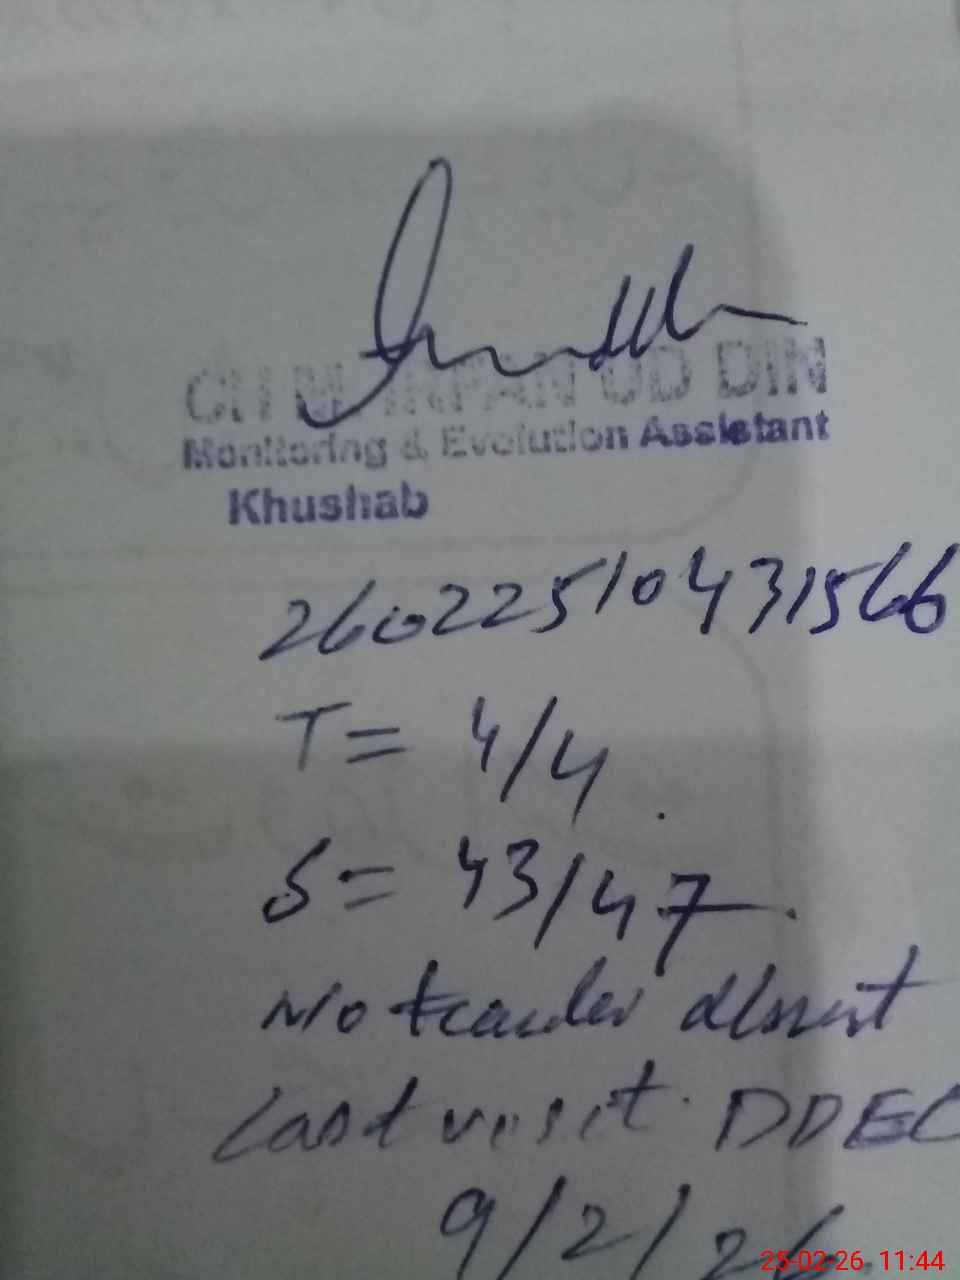 CH M. IRFAN UD DIN
Monitoring & Evolution Assistant
Khushab
26022510431566
T = 4/4
S = 43/47
No teacher absent
Last visit DDEO
9/2/26
25-02-26 11:44